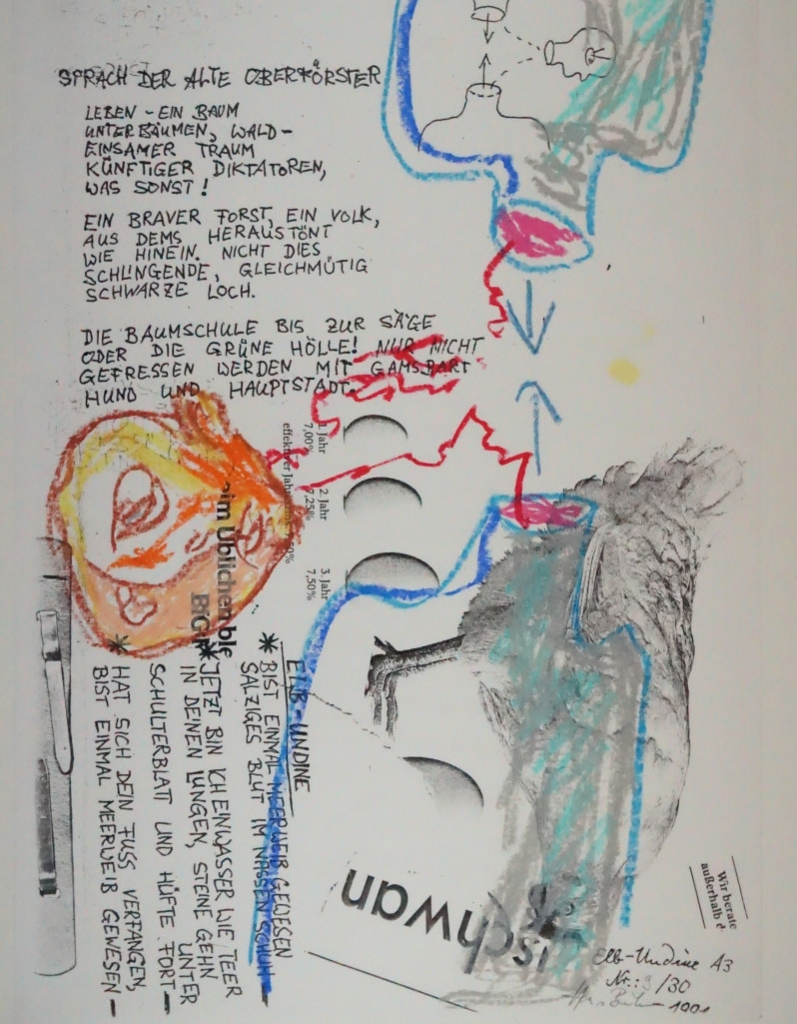 SPRACH DER ALTE OBERFÖRSTER
LEBEN - EIN BAUM
UNTER BÄUMEN, WALD-
EINSAMER TRAUM
KÜNFTIGER DIKTATOREN,
WAS SONST!
EIN BRAVER FORST, EIN VOLK,
AUS DEMS HERAUSTÖNT
WIE HINEIN. NICHT DIES
SCHLINGENDE, GLEICHMÜTIG
SCHWARZE LOCH.
DIE BAUMSCHULE BIS ZUR SÄGE
ODER DIE GRÜNE HÖLLE! NUR NICHT
GEFRESSEN WERDEN MIT GAMSBART
HUND UND HAUPTSTADT.
1. Jahr
7,00%
2. Jahr
7,25%
3. Jahr
7,50%
effektiver
eim Üblichen
ELB-UNDINE
* BIST EINMAL MEERWEIB GEWESEN
SALZIGES BLUT IM NASSEN SCHUH -
* JETZT BIN ICH EINWASSER WIE TEER
IN DEINEN LUNGEN, STEINE GEHN
UNTER
SCHULTERBLATT UND HÜFTE FORT -
* HAT SICH DEIN FUSS VERFANGEN,
BIST EINMAL MEERWEIB GEWESEN -
ischwan
Wir berate
außerhalb d
Elb-Undine A3
Nr.: /30